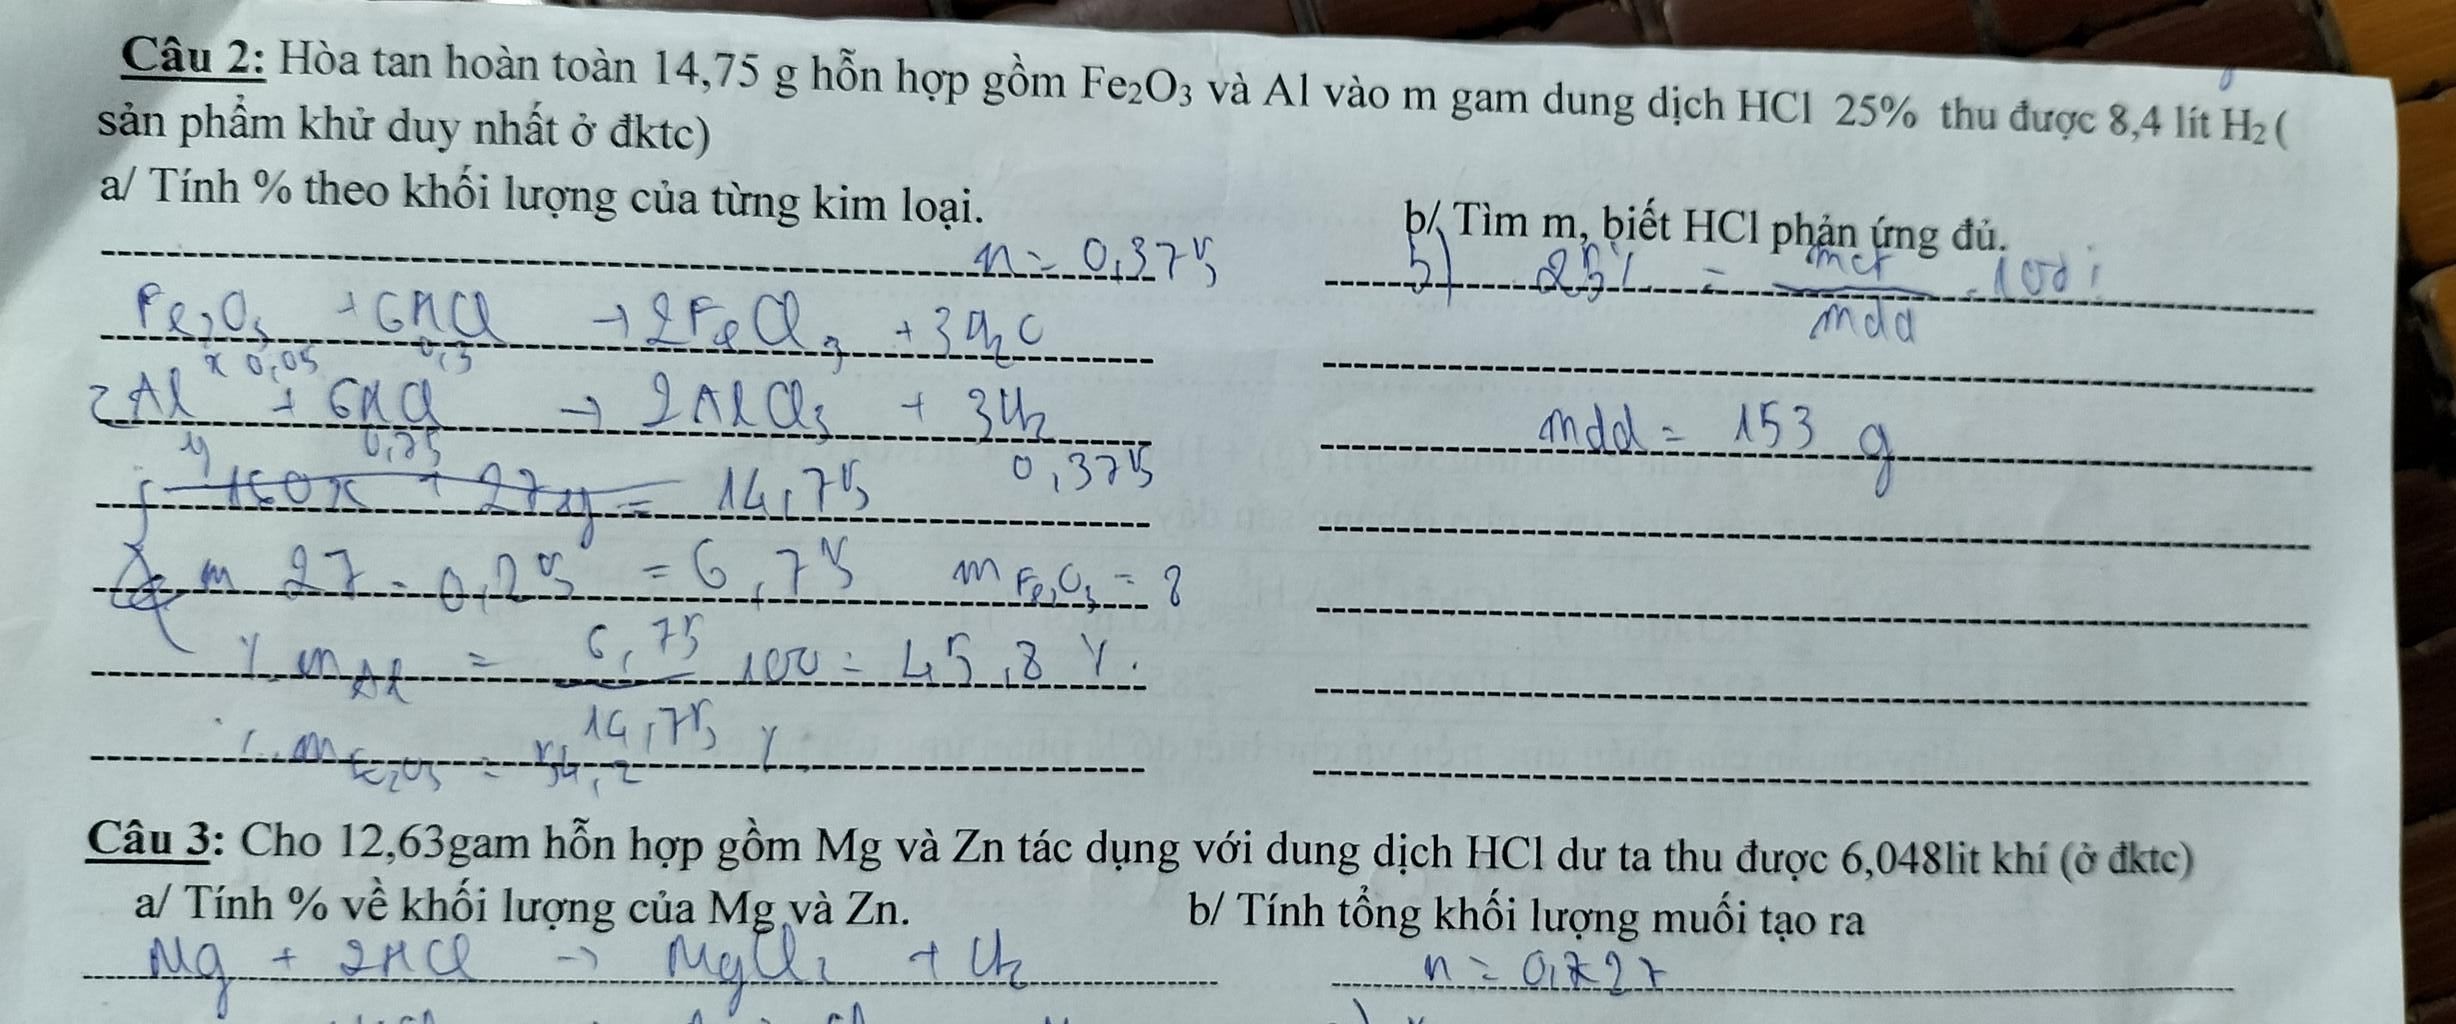 Câu 2: Hòa tan hoàn toàn 14,75 g hỗn hợp gồm Fe₂O₃ và Al vào m gam dung dịch HCl 25% thu được 8,4 lít H₂ (
sản phẩm khử duy nhất ở đktc)
a/ Tính % theo khối lượng của từng kim loại.
b/ Tìm m, biết HCl phản ứng đủ.
n = 0,375
Fe₂O₃ + 6HCl → 2FeCl₃ + 3H₂O
x 0,05 0,3
2Al + 6HCl → 2AlCl₃ + 3H₂
y 0,75 0,375
160x + 27y = 14,75
m 27 . 0,25 = 6,75 m Fe₂O₃ = 8
% mAl = 6,75 / 14,75 100 = 45,8 %.
% mFe₂O₃ = 54,2 %
b) 25% = mct / mdd . 100%
mdd = 153 g
Câu 3: Cho 12,63gam hỗn hợp gồm Mg và Zn tác dụng với dung dịch HCl dư ta thu được 6,048lit khí (ở đktc)
a/ Tính % về khối lượng của Mg và Zn.
b/ Tính tổng khối lượng muối tạo ra
Mg + 2HCl → MgCl₂ + H₂
n = 0,27